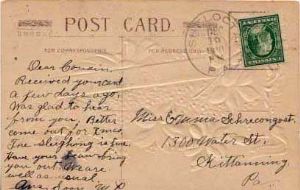 POST CARD.
FOR CORRESPONDENCE
Dear Cousin.
Received your card
a few days ago.
Was glad to hear
from you. Better
come out for Xmas
The sleighing is fine.
Have your beau bring
you out. We are
well as usual.
Miss Schrecongost.
1300 Water St.
Kittanning
Pa.